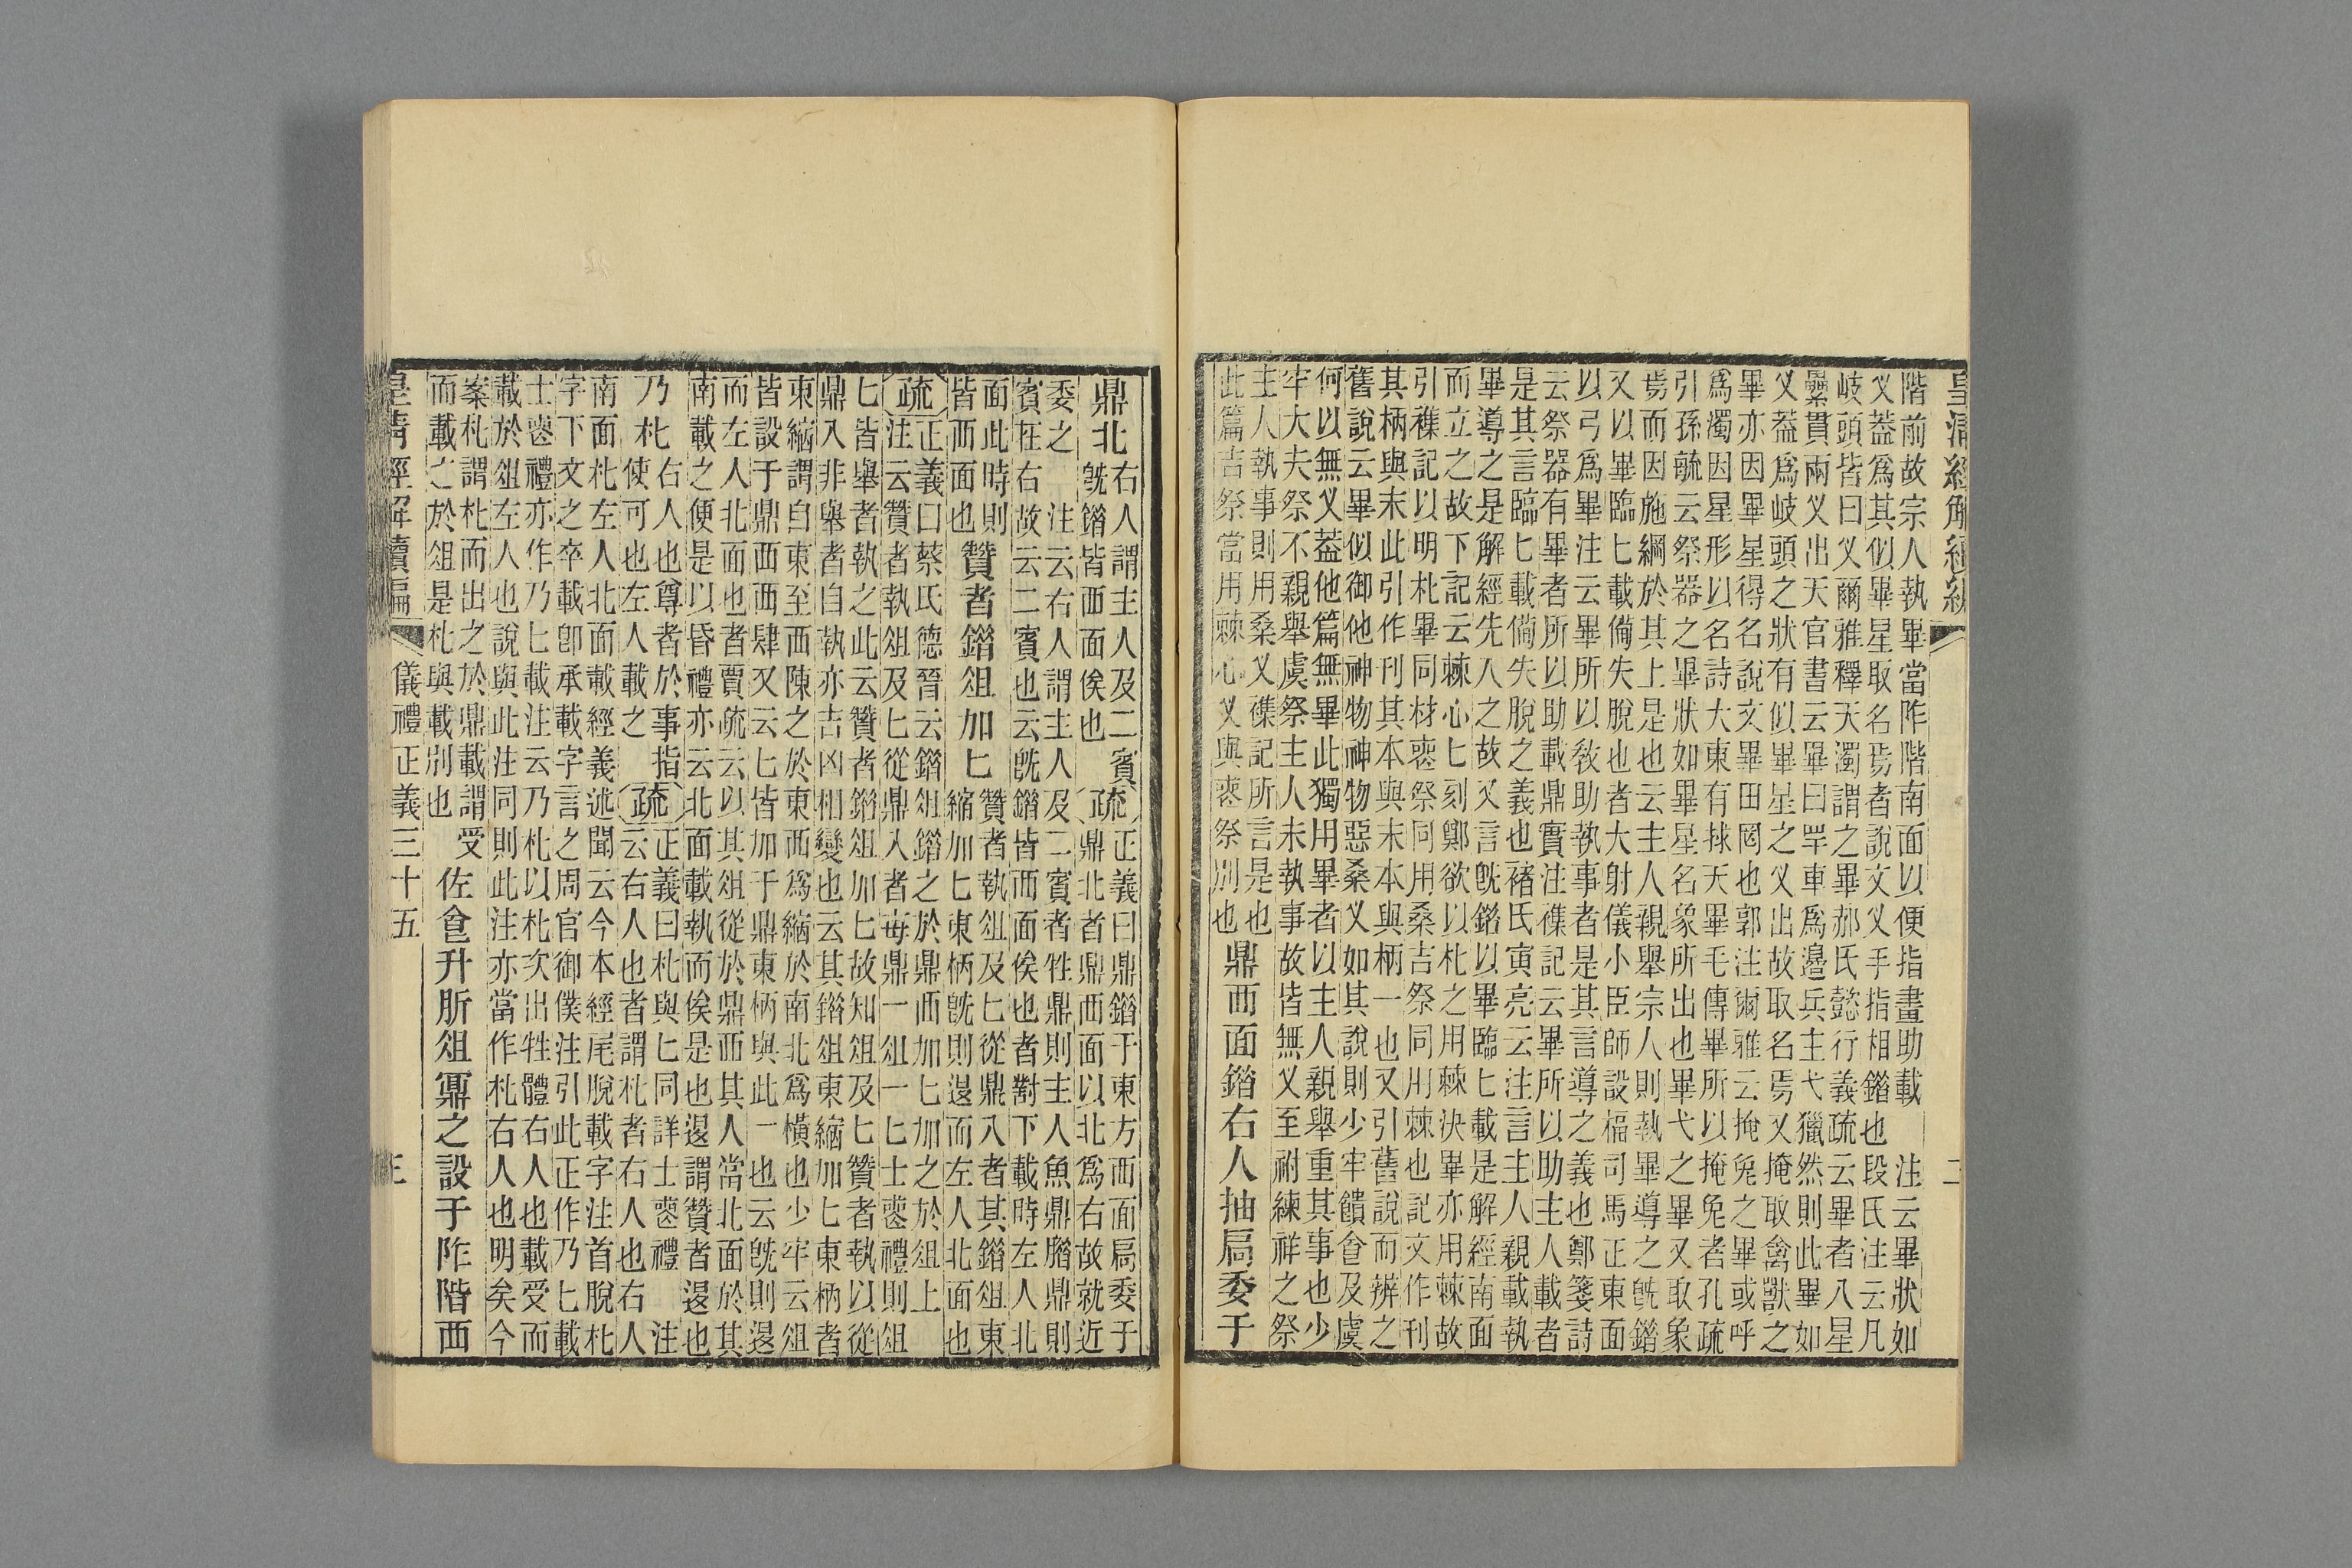 皇清經解續編
二
階前故宗人執畢當阼階南面以便指畫助載　注云畢狀如
叉蓋爲其似畢星取名焉者說文叉手指相錯也段氏注云凡
岐頭皆曰叉爾雅釋天濁謂之畢郝氏懿行義疏云畢者八星
纍貫兩叉出天官書云畢曰罕車爲邊兵主弋獵然則此畢如
叉蓋爲岐頭之狀有似畢星之叉出故取名焉又掩取禽獸之
畢亦因畢星得名說文畢田罔也郭注爾雅云掩兔之畢或呼
爲濁因星形以名詩大東有捄天畢毛傳畢所以掩兔者孔疏
引孫毓云祭器之畢狀如畢星名象所出也畢弋之畢又取象
焉而因施網於其上是也云主人親舉宗人則執畢導之既錯
又以畢臨匕載備失脫也者大射儀小臣師設楅司馬正東面
以弓爲畢注云畢所以敎助執事者是其言導之義也鄭箋詩
云祭器有畢者所以助載鼎實注襍記云畢所以助主人載者
是其言臨匕載備失脫之義也褚氏寅亮云注言主人親載執
畢導之是解經先入之故又言既錯以畢臨匕載是解經南面
而立之故下記云棘心匕刻鄭欲以朼之用棘決畢亦用棘故
引襍記以明朼畢同材喪祭同用桑吉祭同用棘也記文作刊
其柄與末此引作刊其本與末本與柄一也又引舊說而辨之
舊說云畢似御他神物神物惡桑叉如其說則少牢饋食及虞
何以無叉蓋他篇無畢此獨用畢者以主人親舉重其事也少
牢大夫祭不親舉虞祭主人未執事故皆無叉至祔練祥之祭
主人執事則用桑叉襍記所言是也
此篇吉祭當用棘心叉與喪祭別也鼎西面錯右人抽扃委于
鼎北右人謂主人及二賓
既錯皆西面俟也疏正義曰鼎錯于東方西面扃委于
鼎北者鼎西面以北爲右故就近
委之　注云右人謂主人及二賓者牲鼎則主人魚鼎腊鼎則
賓在右故云二賓也云既錯皆西面俟也者對下載時左人北
面此時則
皆西面也贊者錯俎加匕贊者執俎及匕從鼎入者其錯俎東
縮加匕東柄既則退而左人北面也
疏正義曰蔡氏德晉云錯俎錯之於鼎西加匕加之於俎上
注云贊者執俎及匕從鼎入者每鼎一俎一匕士喪禮則俎
匕皆舉者執之此云贊者錯俎加匕故知俎及匕贊者執以從
鼎入非舉者自執亦吉凶相變也云其錯俎東縮加匕東柄者
東縮謂自東至西陳之於東西爲縮於南北爲橫也少牢云俎
皆設于鼎西西肆又云匕皆加于鼎東柄與此一也云既則退
而左人北面也者賈疏云以其俎從於鼎西其人當北面於其
南載之便是以昏禮亦云北面載執而俟是也退謂贊者退也
乃朼右人也尊者於事指
使可也左人載之疏正義曰朼與匕同詳士喪禮　注
云右人也者謂朼者右人也右人
南面朼左人北面載經義述聞云今本經尾脫載字注首脫朼
字下文之卒載卽承載字言之周官御僕注引此正作乃匕載
士喪禮亦作乃匕載注云乃朼以朼次出牲體右人也載受而
載於俎左人也說與此注同則此注亦當作朼右人也明矣今
案朼謂朼而出之於鼎載謂受
而載之於俎是朼與載別也佐食升肵俎鼏之設于阼階西
皇清經解續編
儀禮正義三十五
三